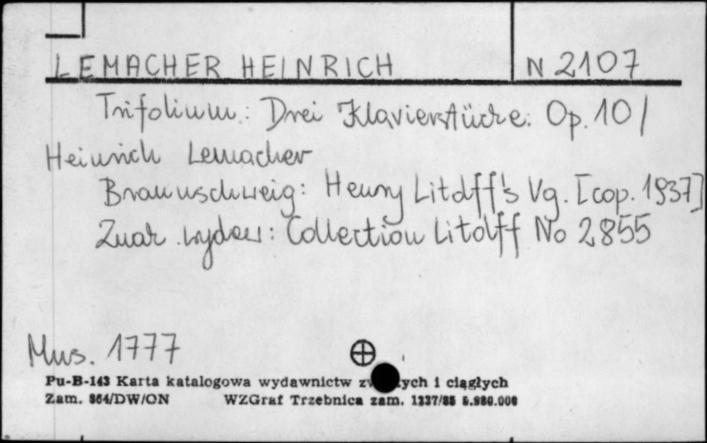 LEMACHER HEINRICH N 2107
Trifolium: Drei Klavierstücke. Op. 10 /
Heinrich Lemacher
Braunschweig: Henry Litolff's Vg. [cop. 1937]
Znak wydaw: Collection Litolff No 2855
Mus. 1777
Pu-B-143 Karta katalogowa wydawnictw i ciągłych
Zam. 864/DW/ON WZGraf Trzebnica zam. 1237/85 5.980.000